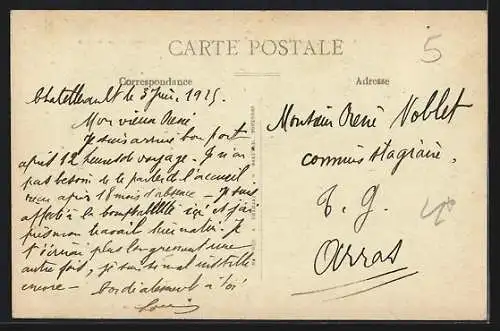 CARTE POSTALE
5
Correspondance
Adresse
Chatellerault le 3 Juin 1925.
Mon vieux René
Je suis arrivé bon port
après 12 heures de voyage. Je n'ai
pas besoin de te parler de l'accueil
reçu après 18 mois d'absence. Je suis
affecté à la comptabilité ici et j'ai
pris mon travail ce matin. Je
t'écrirai plus longuement une
autre fois, je suis mal installé
encore - Cordialement à toi
Louis
Monsieur René Noblet
commis stagiaire.
T. G.
Arras